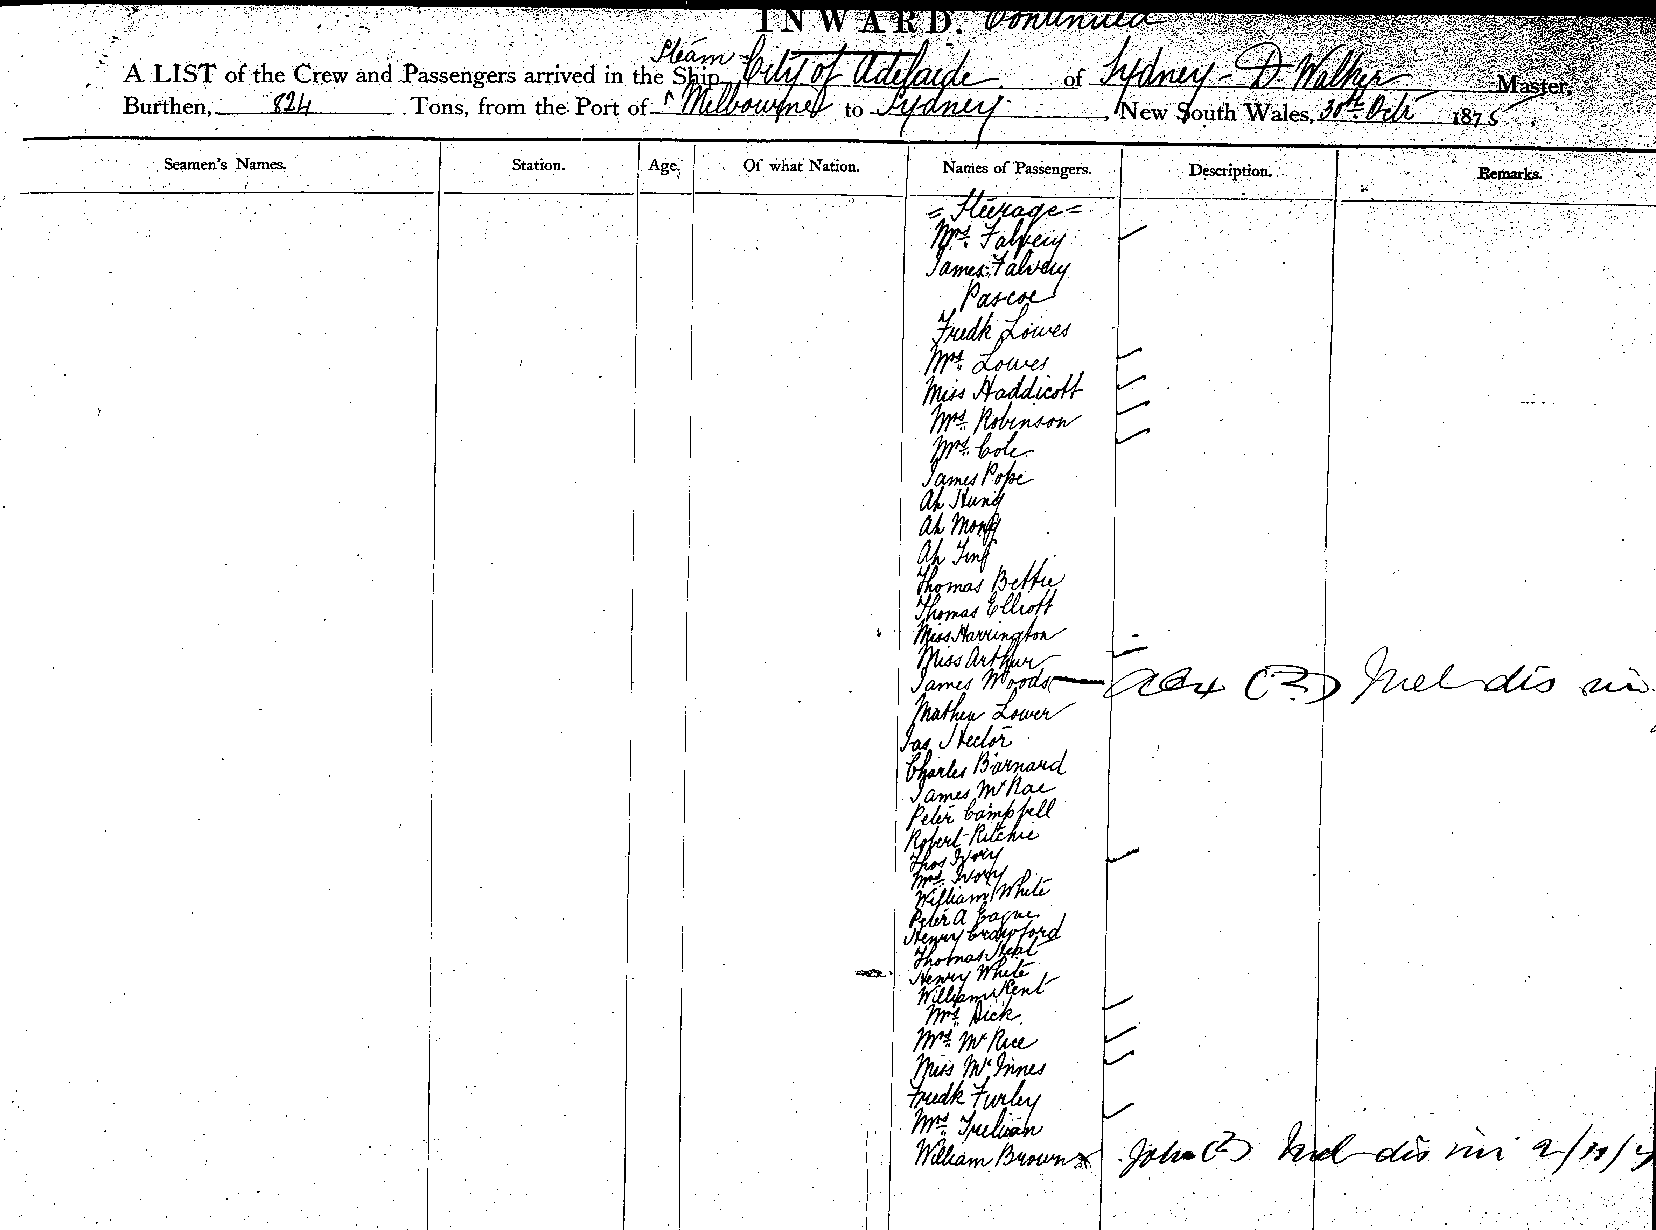 INWARD. Continued
Steam
A LIST of the Crew and Passengers arrived in the Ship City of Adelaide of Sydney - D Walker Master,
Burthen, 824 Tons, from the Port of Melbourne to Sydney, New South Wales, 30th Octr 1875
Seamen's Names. Station. Age. Of what Nation. Names of Passengers. Description. Remarks.
= Steerage =
Mrs. Falvey
James Falvey
Pascoe
Fredk Lowes
Mrs. Lowes
Miss Haddicott
Mrs. Robinson
Mrs. Cole
James Pope
Ah Hung
Ah Mong
Ah
Thomas Bettie
Thomas Elliott
Miss Harrington
Miss Arthur
James Woods (?) Mel dis
Mathew Lower
Jas Hector
Charles Barnard
James McRae
Peter Campbell
Robert Ritchie
Thos Ivory
Mrs. Ivory
William White
Peter A
Henry Crawford
Thomas
Henry White
William Kent
Mrs. Dick
Mrs. McRice
Miss McInnes
Fredk Furley
Mrs.
William Brown x John (?) Mel dis